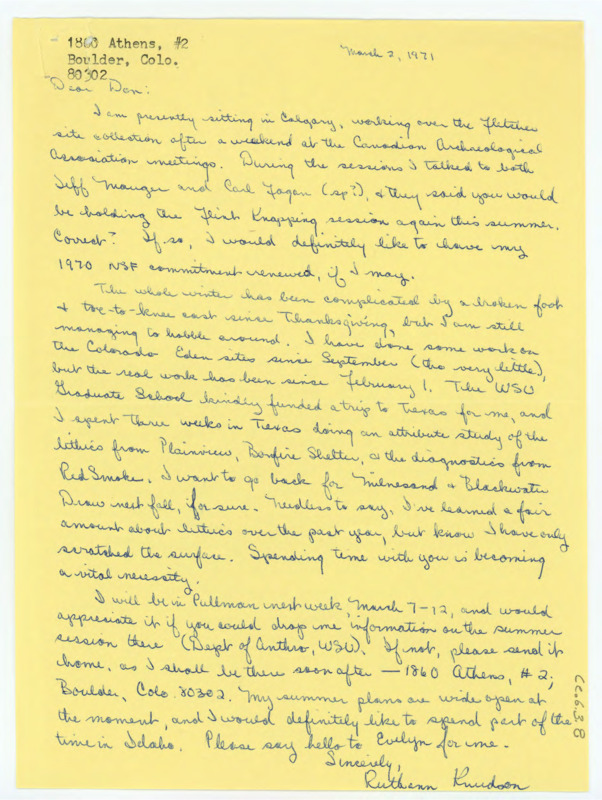 1860 Athens, #2
Boulder, Colo.
80302
March 2, 1971
Dear Don:
I am presently sitting in Calgary, working over the Fletcher
site collection after a weekend at the Canadian Archaeological
Association meetings. During the sessions I talked to both
Jeff Mauger and Carl Fagan (sp?), & they said you would
be holding the Flint Knapping session again this summer.
Correct? If so, I would definitely like to have my
1970 NSF commitment renewed, if I may.
The whole winter has been complicated by a broken foot
& toe-to-knee cast since Thanksgiving, but I am still
managing to hobble around. I have done some work on
the Colorado Eden sites since September (tho very little),
but the real work has been since February 1. The WSU
Graduate School kindly funded a trip to Texas for me, and
I spent three weeks in Texas doing an attribute study of the
lithics from Plainview, Bonfire Shelter, & the diagnostics from
Red Smoke. I want to go back for Milnesand & Blackwater
Draw next fall, for sure. Needless to say, I've learned a fair
amount about lithics over the past year, but know I have only
scratched the surface. Spending time with you is becoming
a vital necessity.
I will be in Pullman next week, March 7-12, and would
appreciate it if you could drop me information on the summer
session there (Dept of Anthro, WSU). If not, please send it
home, as I shall be there soon after — 1860 Athens, #2;
Boulder, Colo. 80302. My summer plans are wide open at
the moment, and I would definitely like to spend part of the
time in Idaho. Please say hello to Evelyn for me.
Sincerely,
Ruthann Knudson